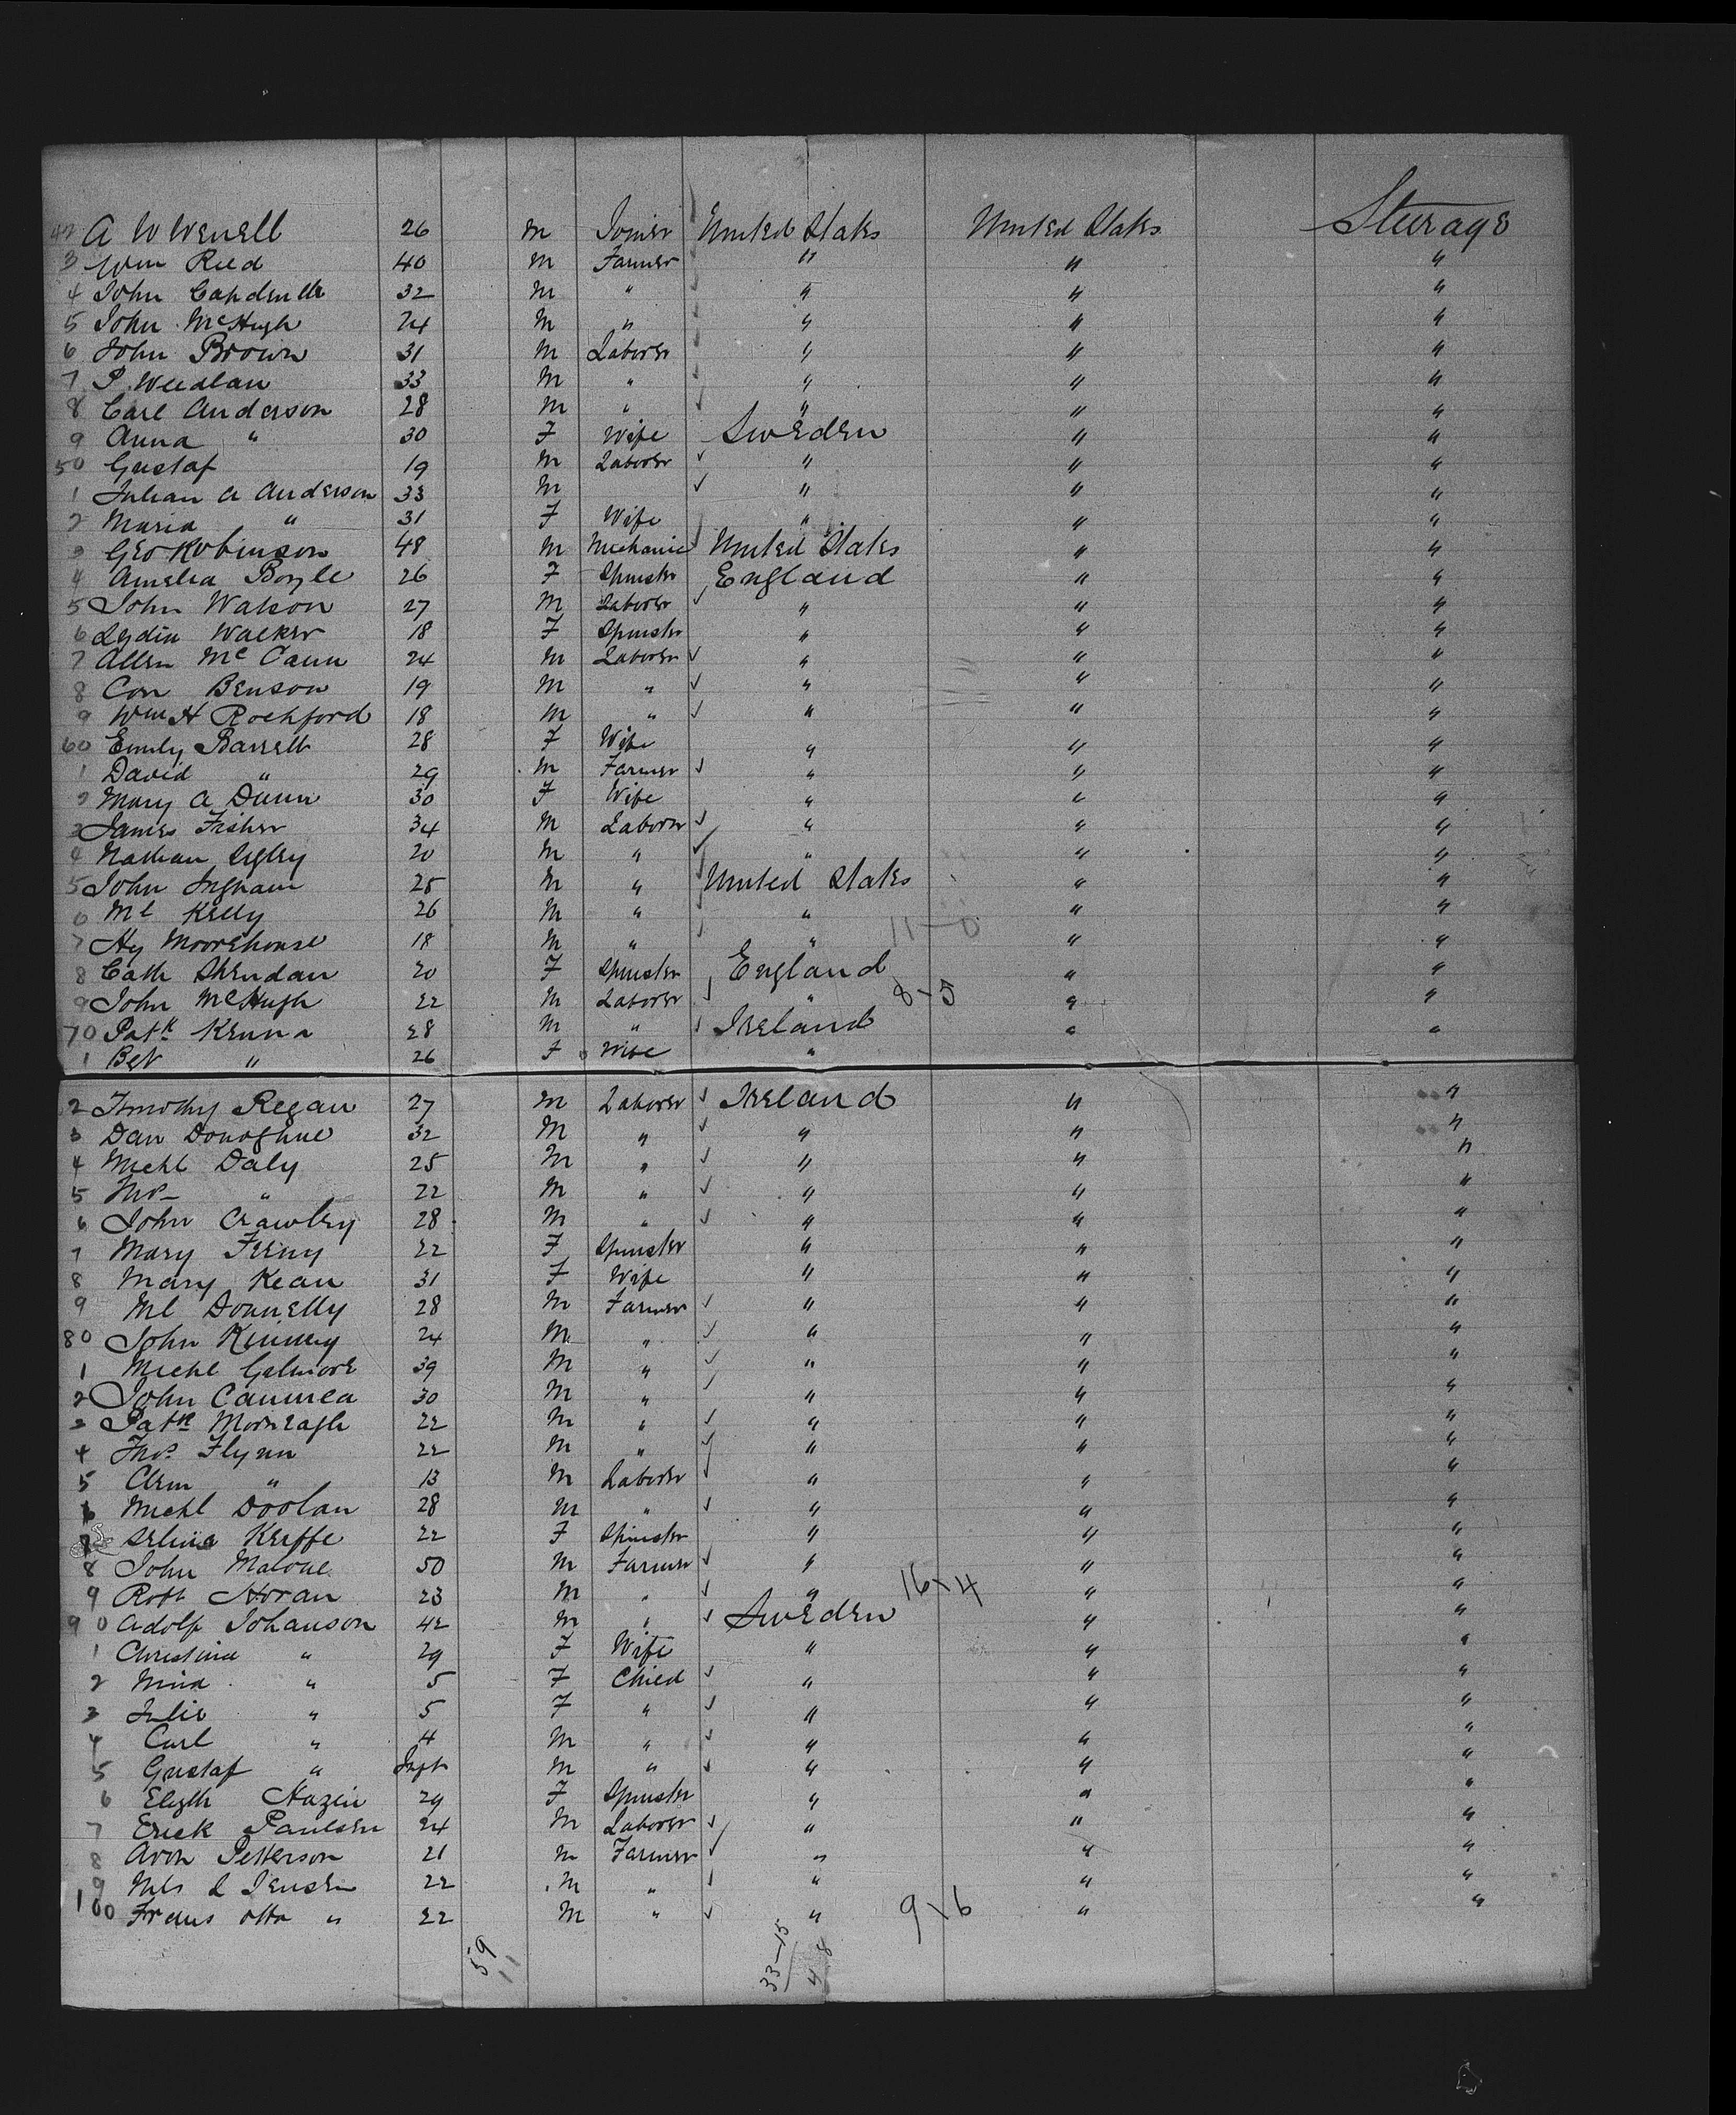 42 A W Wenell 26 M Joiner United States United States Steerage
3 Wm Reed 40 M Farmer " " "
4 John 32 M " " " "
5 John McHugh 24 M " " " "
6 John Brown 31 M Laborer " " "
7 P. Weedlan 33 M " " " "
8 Carl Anderson 28 M " " " "
9 Anna " 30 F Wife Sweden " "
50 Gustaf 19 M Laborer " " "
1 Julian A Anderson 33 M " " "
2 Maria " 31 F Wife " " "
3 Geo Robinson 48 M Mechanic United States " "
4 Amelia Boyle 26 F Spinster England " "
5 John Watson 27 M Laborer " " "
6 Lydia Walker 18 F Spinster " " "
7 Allen McCann 24 M Laborer " " "
8 Con Benson 19 M " " " "
9 Wm H Rochford 18 M " " " "
60 Emily Barrett 28 F Wife " " "
1 David " 29 M Farmer " " "
2 Mary A Dunn 30 F Wife " " "
3 James Fisher 34 M Laborer " " "
4 Nathan 20 M " " " "
5 John Ingham 25 M " United States " "
6 Ml Kelly 26 M " " " "
11-0
7 Hy Moorehouse 18 M " " " "
8 Cath Sheridan 20 F Spinster England " "
9 John McHugh 22 M Laborer " 8-5 " "
70 Patk Kenna 28 M " Ireland " "
1 Bet " 26 F Wife "
2 Timothy Regan 27 M Laborer Ireland " "
3 Dan Donoghue 32 M " " " "
4 Michl Daly 25 M " " " "
5 Thos " 22 M " " " "
6 John Crawley 28 M " " " "
7 Mary Feeny 22 F Spinster " " "
8 Mary Kean 31 F Wife " " "
9 Ml Donnelly 28 M Farmer " " "
80 John Kenney 24 M " " " "
1 Michl Gilmore 39 M " " " "
2 John Cannica 30 M " " " "
3 Patk 22 M " " " "
4 Thos Flynn 22 M " " " "
5 " 13 M Laborer " " "
6 Michl Doolan 28 M " " " "
7 Selina Keeffe 22 F Spinster " " "
8 John Malone 50 M Farmer " " "
9 Robt Horan 23 M " " 16-4 " "
90 Adolf Johanson 42 M " Sweden " "
1 Christina " 29 F Wife " " "
2 Nina " 5 F Child " " "
3 Julie " 5 F " " " "
4 Carl " 4 M " " " "
5 Gustaf " Inft M " " " "
6 Elizth Hazen 29 F Spinster " " "
7 Erick Paulsen 24 M Laborer " " "
8 Petterson 21 M Farmer " " "
9 Nils L Jensen 22 M " " " "
100 Otto " 22 M " " 9-6 " "
59
33-15
48